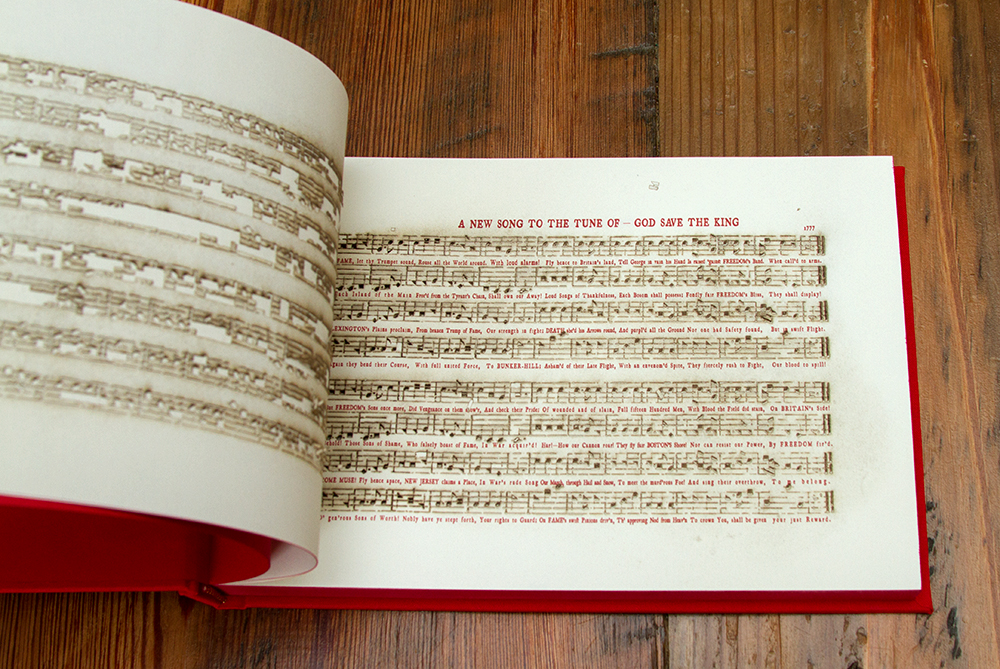 A NEW SONG TO THE TUNE OF — GOD SAVE THE KING
1777
FAME, let thy Trumpet sound, Rouse all the World around. With loud alarms! Fly hence to Britain's land, Tell George in vain his Hand Is raised 'gainst FREEDOM's Band. When call'd to arms.
Each Island of the Main Freed from the Tyrant's Chain, Shall own our Sway! Loud Songs of Thankfulness, Each Bosom shall possess; Fondly fair FREEDOM's Bless, They shall display!
LEXINGTON's Plains proclaim, From bronze Trump of Fame, Our strength in fight; DEATH, she'd his Arrows round, And purpl'd all the Ground Nor one had Safety found, But in swift Flight.
Again they bend their Course, With full united Force, To BUNKER-HILL! Asham'd of their Late Flight, With an envenom'd Spite, They fiercely rush to Fight, Our blood to spill!
FREEDOM's Sons once more, Did Vengeance on them show'r, And check their Pride; Of wounded and of slain, Full fifteen Hundred Men, With Blood the Field did stain, On BRITAIN's Side!
Those Sons of Shame, Who falsely boast of Fame, In War acquir'd! Hark—How our Cannon roar! They fly fair BOSTON'S Shore! Nor can resist our Power, By FREEDOM fir'd.
COME MUSE! Fly hence apace, NEW JERSEY claims a Place, In War's rude Song Our March, through Hail and Snow, To meet the Foe! And sing their overthrow, To belong.
gen'rous Sons of Worth! Nobly have ye stept forth, Your rights to Guard; On FAME's swift Pinions Th' approving Nod from Heav'n To crown You, shall be given your just Reward.